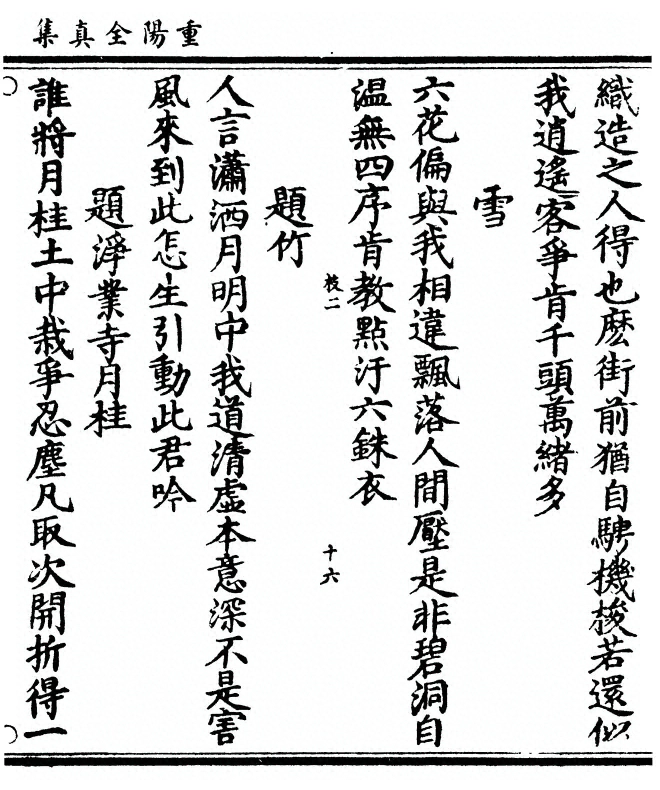 重陽全真集
織造之人得也麽街前猶自騁機梭若還似
我逍遙客爭肯千頭萬緒多
雪
六花偏與我相違飄落人間壓是非碧洞自
温無四序肯教點汙六銖衣
枝二
十六
題竹
人言瀟洒月明中我道清虛本意深不是害
風來到此怎生引動此君吟
題淨業寺月桂
誰將月桂土中栽爭忍塵凡取次開折得一